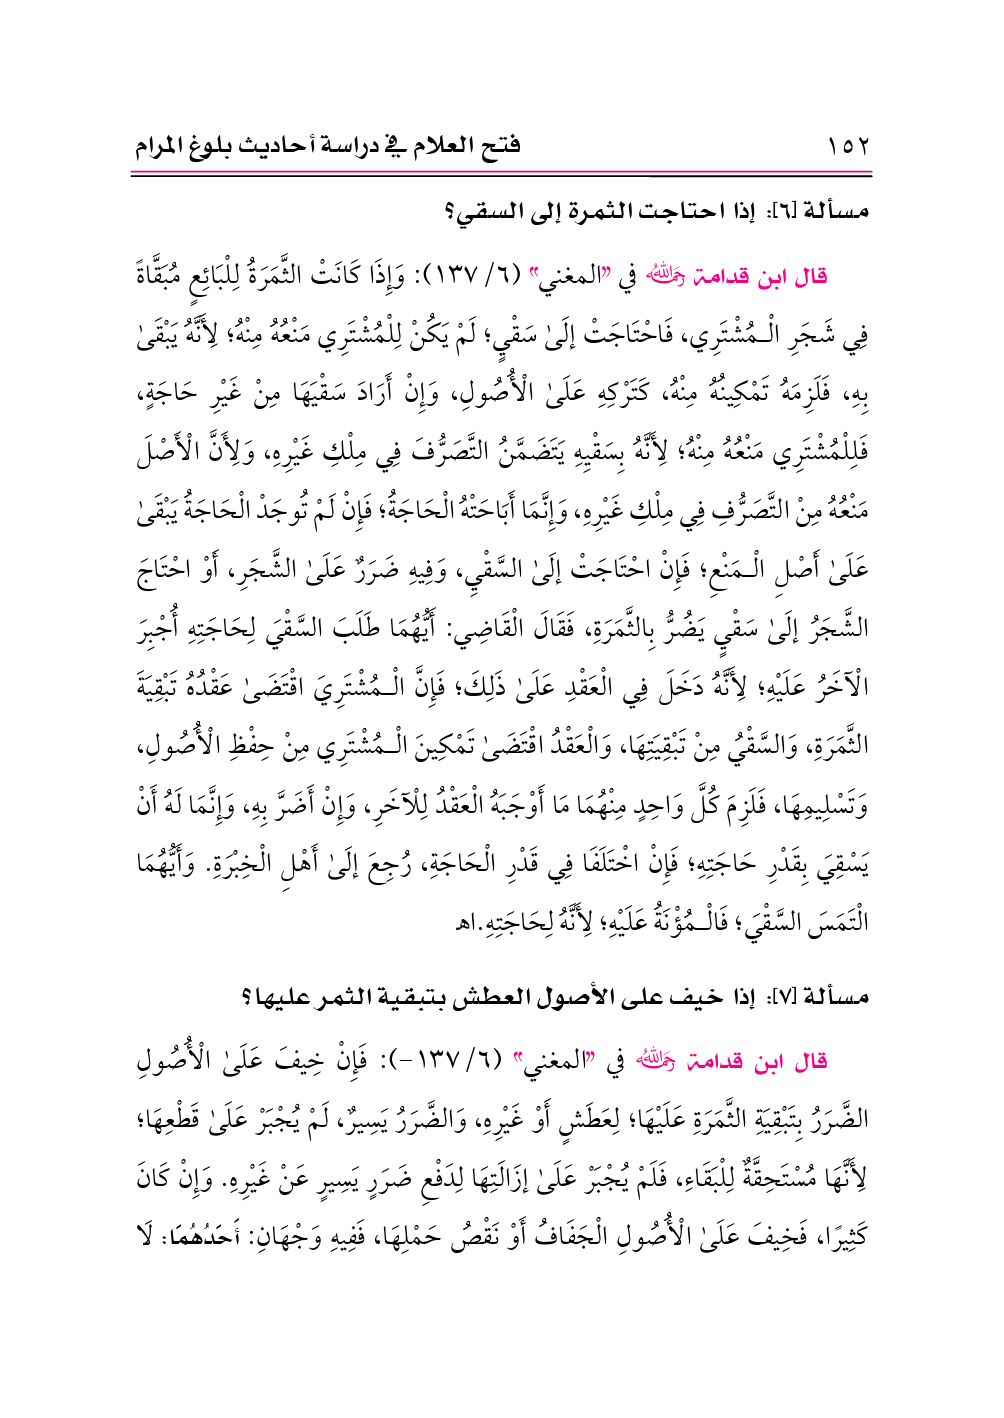 ١٥٢ فتح العلام في دراسة أحاديث بلوغ المرام
مسألة [٦]: إذا احتاجت الثمرة إلى السقي؟
قال ابن قدامة رَحِمَهُ اللهُ في "المغني" (٦/ ١٣٧): وَإِذَا كَانَتْ الثَّمَرَةُ لِلْبَائِعِ مُبَقَّاةً
فِي شَجَرِ الْـمُشْتَرِي، فَاحْتَاجَتْ إلَىٰ سَقْيٍ؛ لَمْ يَكُنْ لِلْمُشْتَرِي مَنْعُهُ مِنْهُ؛ لِأَنَّهُ يَبْقَىٰ
بِهِ، فَلَزِمَهُ تَمْكِينُهُ مِنْهُ، كَتَرْكِهِ عَلَىٰ الْأُصُولِ، وَإِنْ أَرَادَ سَقْيَهَا مِنْ غَيْرِ حَاجَةٍ،
فَلِلْمُشْتَرِي مَنْعُهُ مِنْهُ؛ لِأَنَّهُ بِسَقْيِهِ يَتَضَمَّنُ التَّصَرُّفَ فِي مِلْكِ غَيْرِهِ، وَلِأَنَّ الْأَصْلَ
مَنْعُهُ مِنْ التَّصَرُّفِ فِي مِلْكِ غَيْرِهِ، وَإِنَّمَا أَبَاحَتْهُ الْحَاجَةُ؛ فَإِنْ لَمْ تُوجَدْ الْحَاجَةُ يَبْقَىٰ
عَلَىٰ أَصْلِ الْـمَنْعِ؛ فَإِنْ احْتَاجَتْ إلَىٰ السَّقْيِ، وَفِيهِ ضَرَرٌ عَلَىٰ الشَّجَرِ، أَوْ احْتَاجَ
الشَّجَرُ إلَىٰ سَقْيٍ يَضُرُّ بِالثَّمَرَةِ، فَقَالَ الْقَاضِي: أَيُّهُمَا طَلَبَ السَّقْيَ لِحَاجَتِهِ أُجْبِرَ
الْآخَرُ عَلَيْهِ؛ لِأَنَّهُ دَخَلَ فِي الْعَقْدِ عَلَىٰ ذَلِكَ؛ فَإِنَّ الْـمُشْتَرِيَ اقْتَضَىٰ عَقْدُهُ تَبْقِيَةَ
الثَّمَرَةِ، وَالسَّقْيُ مِنْ تَبْقِيَتِهَا، وَالْعَقْدُ اقْتَضَىٰ تَمْكِينَ الْـمُشْتَرِي مِنْ حِفْظِ الْأُصُولِ،
وَتَسْلِيمِهَا، فَلَزِمَ كُلَّ وَاحِدٍ مِنْهُمَا مَا أَوْجَبَهُ الْعَقْدُ لِلْآخَرِ، وَإِنْ أَضَرَّ بِهِ، وَإِنَّمَا لَهُ أَنْ
يَسْقِيَ بِقَدْرِ حَاجَتِهِ؛ فَإِنْ اخْتَلَفَا فِي قَدْرِ الْحَاجَةِ، رُجِعَ إلَىٰ أَهْلِ الْخِبْرَةِ. وَأَيُّهُمَا
الْتَمَسَ السَّقْيَ؛ فَالْـمُؤْنَةُ عَلَيْهِ؛ لِأَنَّهُ لِحَاجَتِهِ.اهـ
مسألة [٧]: إذا خيف على الأصول العطش بتبقية الثمر عليها؟
قال ابن قدامة رَحِمَهُ اللهُ في "المغني" (٦/ ١٣٧-): فَإِنْ خِيفَ عَلَىٰ الْأُصُولِ
الضَّرَرُ بِتَبْقِيَةِ الثَّمَرَةِ عَلَيْهَا؛ لِعَطَشٍ أَوْ غَيْرِهِ، وَالضَّرَرُ يَسِيرٌ، لَمْ يُجْبَرْ عَلَىٰ قَطْعِهَا؛
لِأَنَّهَا مُسْتَحِقَّةٌ لِلْبَقَاءِ، فَلَمْ يُجْبَرْ عَلَىٰ إزَالَتِهَا لِدَفْعِ ضَرَرٍ يَسِيرٍ عَنْ غَيْرِهِ. وَإِنْ كَانَ
كَثِيرًا، فَخِيفَ عَلَىٰ الْأُصُولِ الْجَفَافُ أَوْ نَقْصُ حَمْلِهَا، فَفِيهِ وَجْهَانِ: أَحَدُهُمَا: لَا